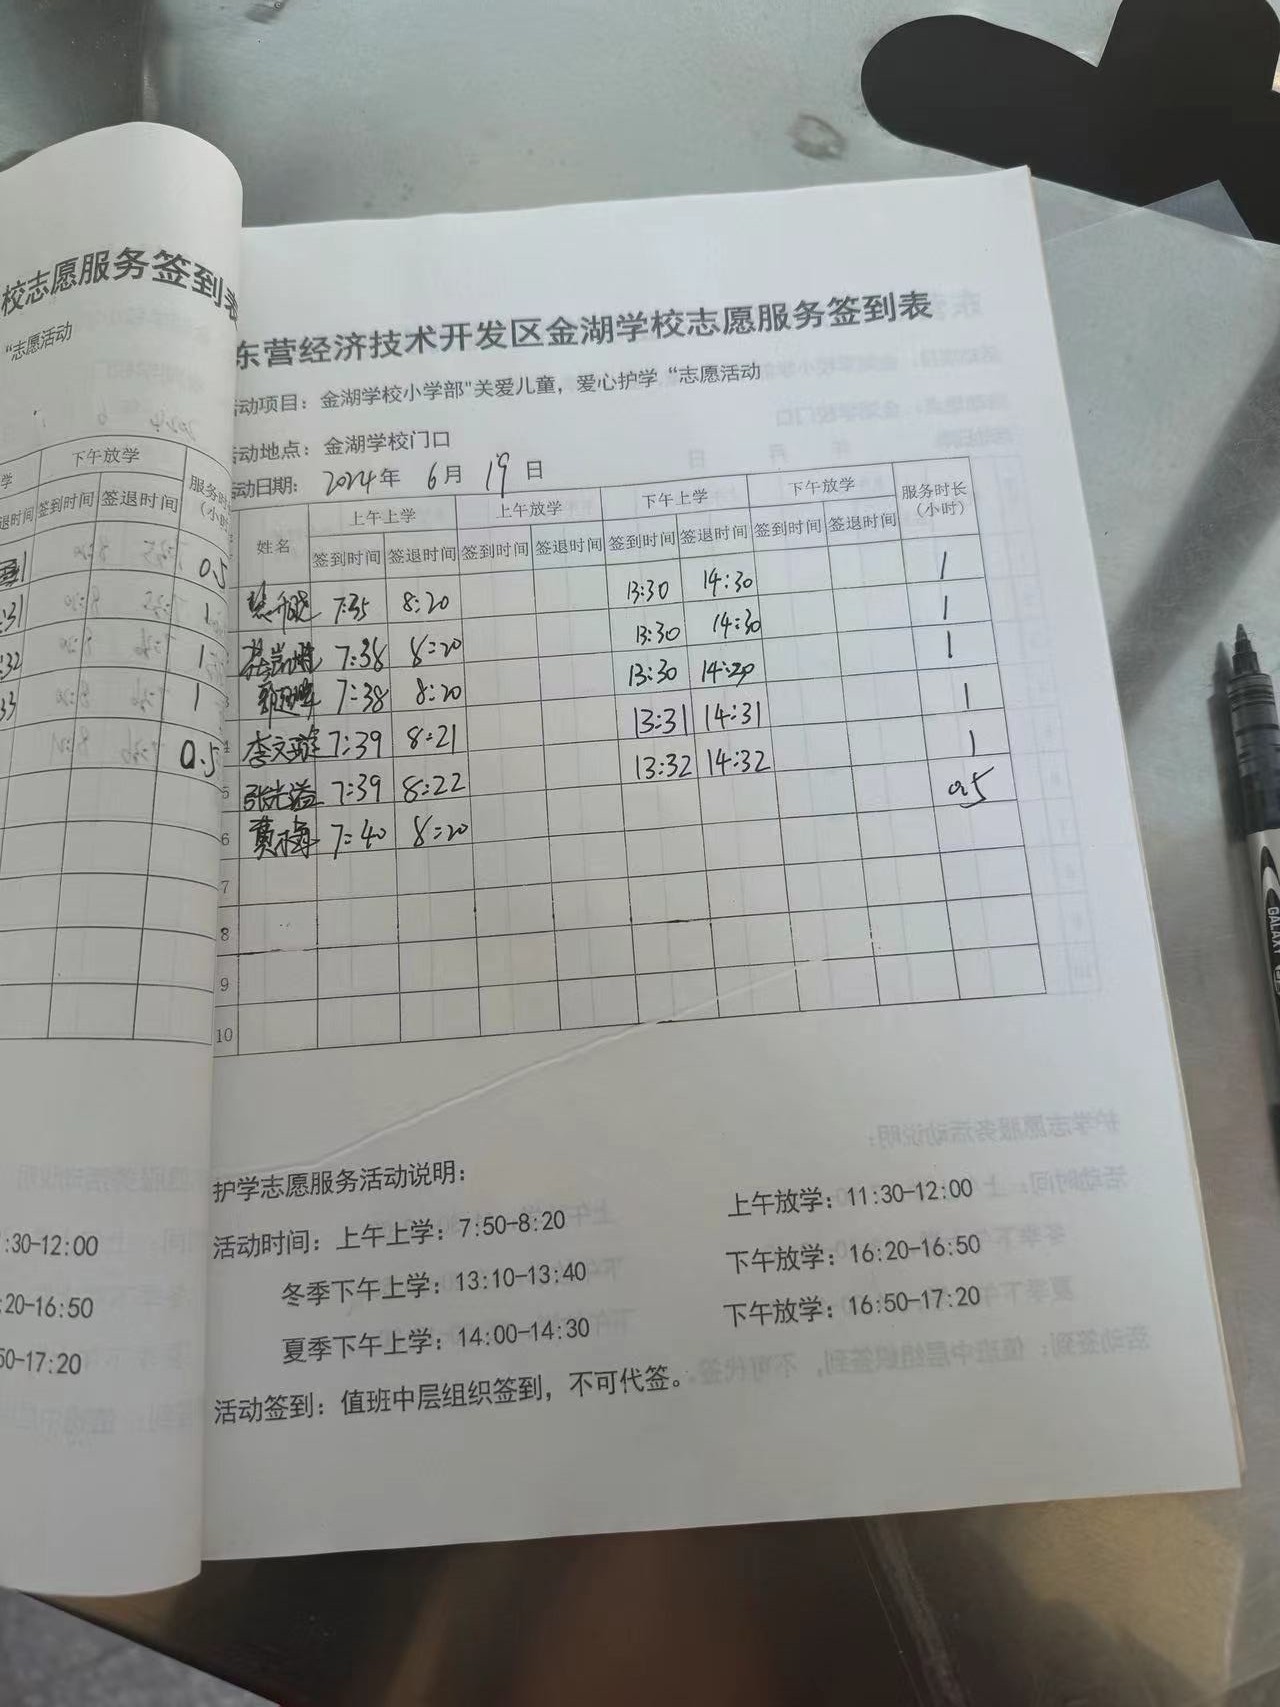 校志愿服务签到表
"志愿活动
下午放学
签到时间 签退时间
服务时
(小时
0.5
:31 1
:32 1
:33 1
0.5
:30-12:00
:20-16:50
50-17:20
东营经济技术开发区金湖学校志愿服务签到表
活动项目：金湖学校小学部"关爱儿童，爱心护学"志愿活动
活动地点：金湖学校门口
活动日期： 2024年 6月 19日
姓名 上午上学 上午放学 下午上学 下午放学 服务时长（小时）
签到时间 签退时间 签到时间 签退时间 签到时间 签退时间 签到时间 签退时间
7:35 8:20 13:30 14:30 1
7:38 8:20 13:30 14:30 1
3 7:38 8:20 13:30 14:30 1
4 李文璇 7:39 8:21 13:31 14:31 1
5 7:39 8:22 13:32 14:32 1
6 7:40 8:20 0.5
7
8
9
10
护学志愿服务活动说明：
活动时间：上午上学：7:50-8:20 上午放学：11:30-12:00
冬季下午上学：13:10-13:40 下午放学：16:20-16:50
夏季下午上学：14:00-14:30 下午放学：16:50-17:20
活动签到：值班中层组织签到，不可代签。
GALAXY